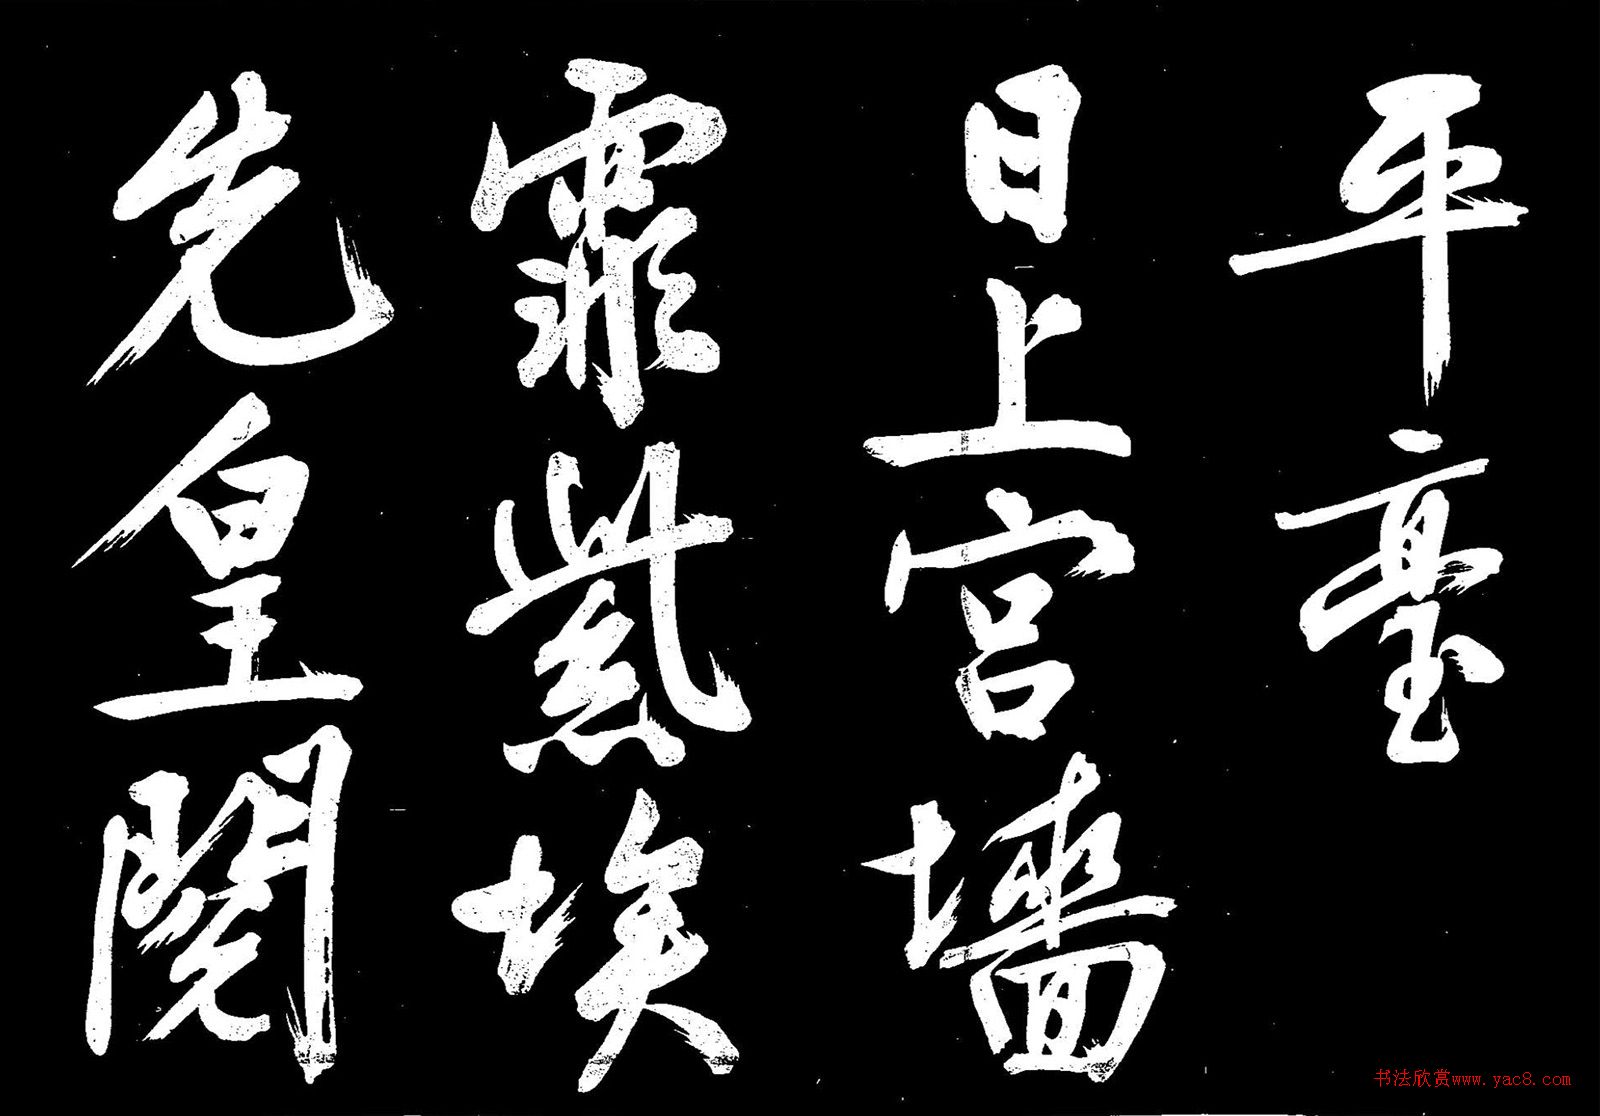 平臺
日上宫墻
霏紫埃
先皇閱
书法欣赏www.yac8.com